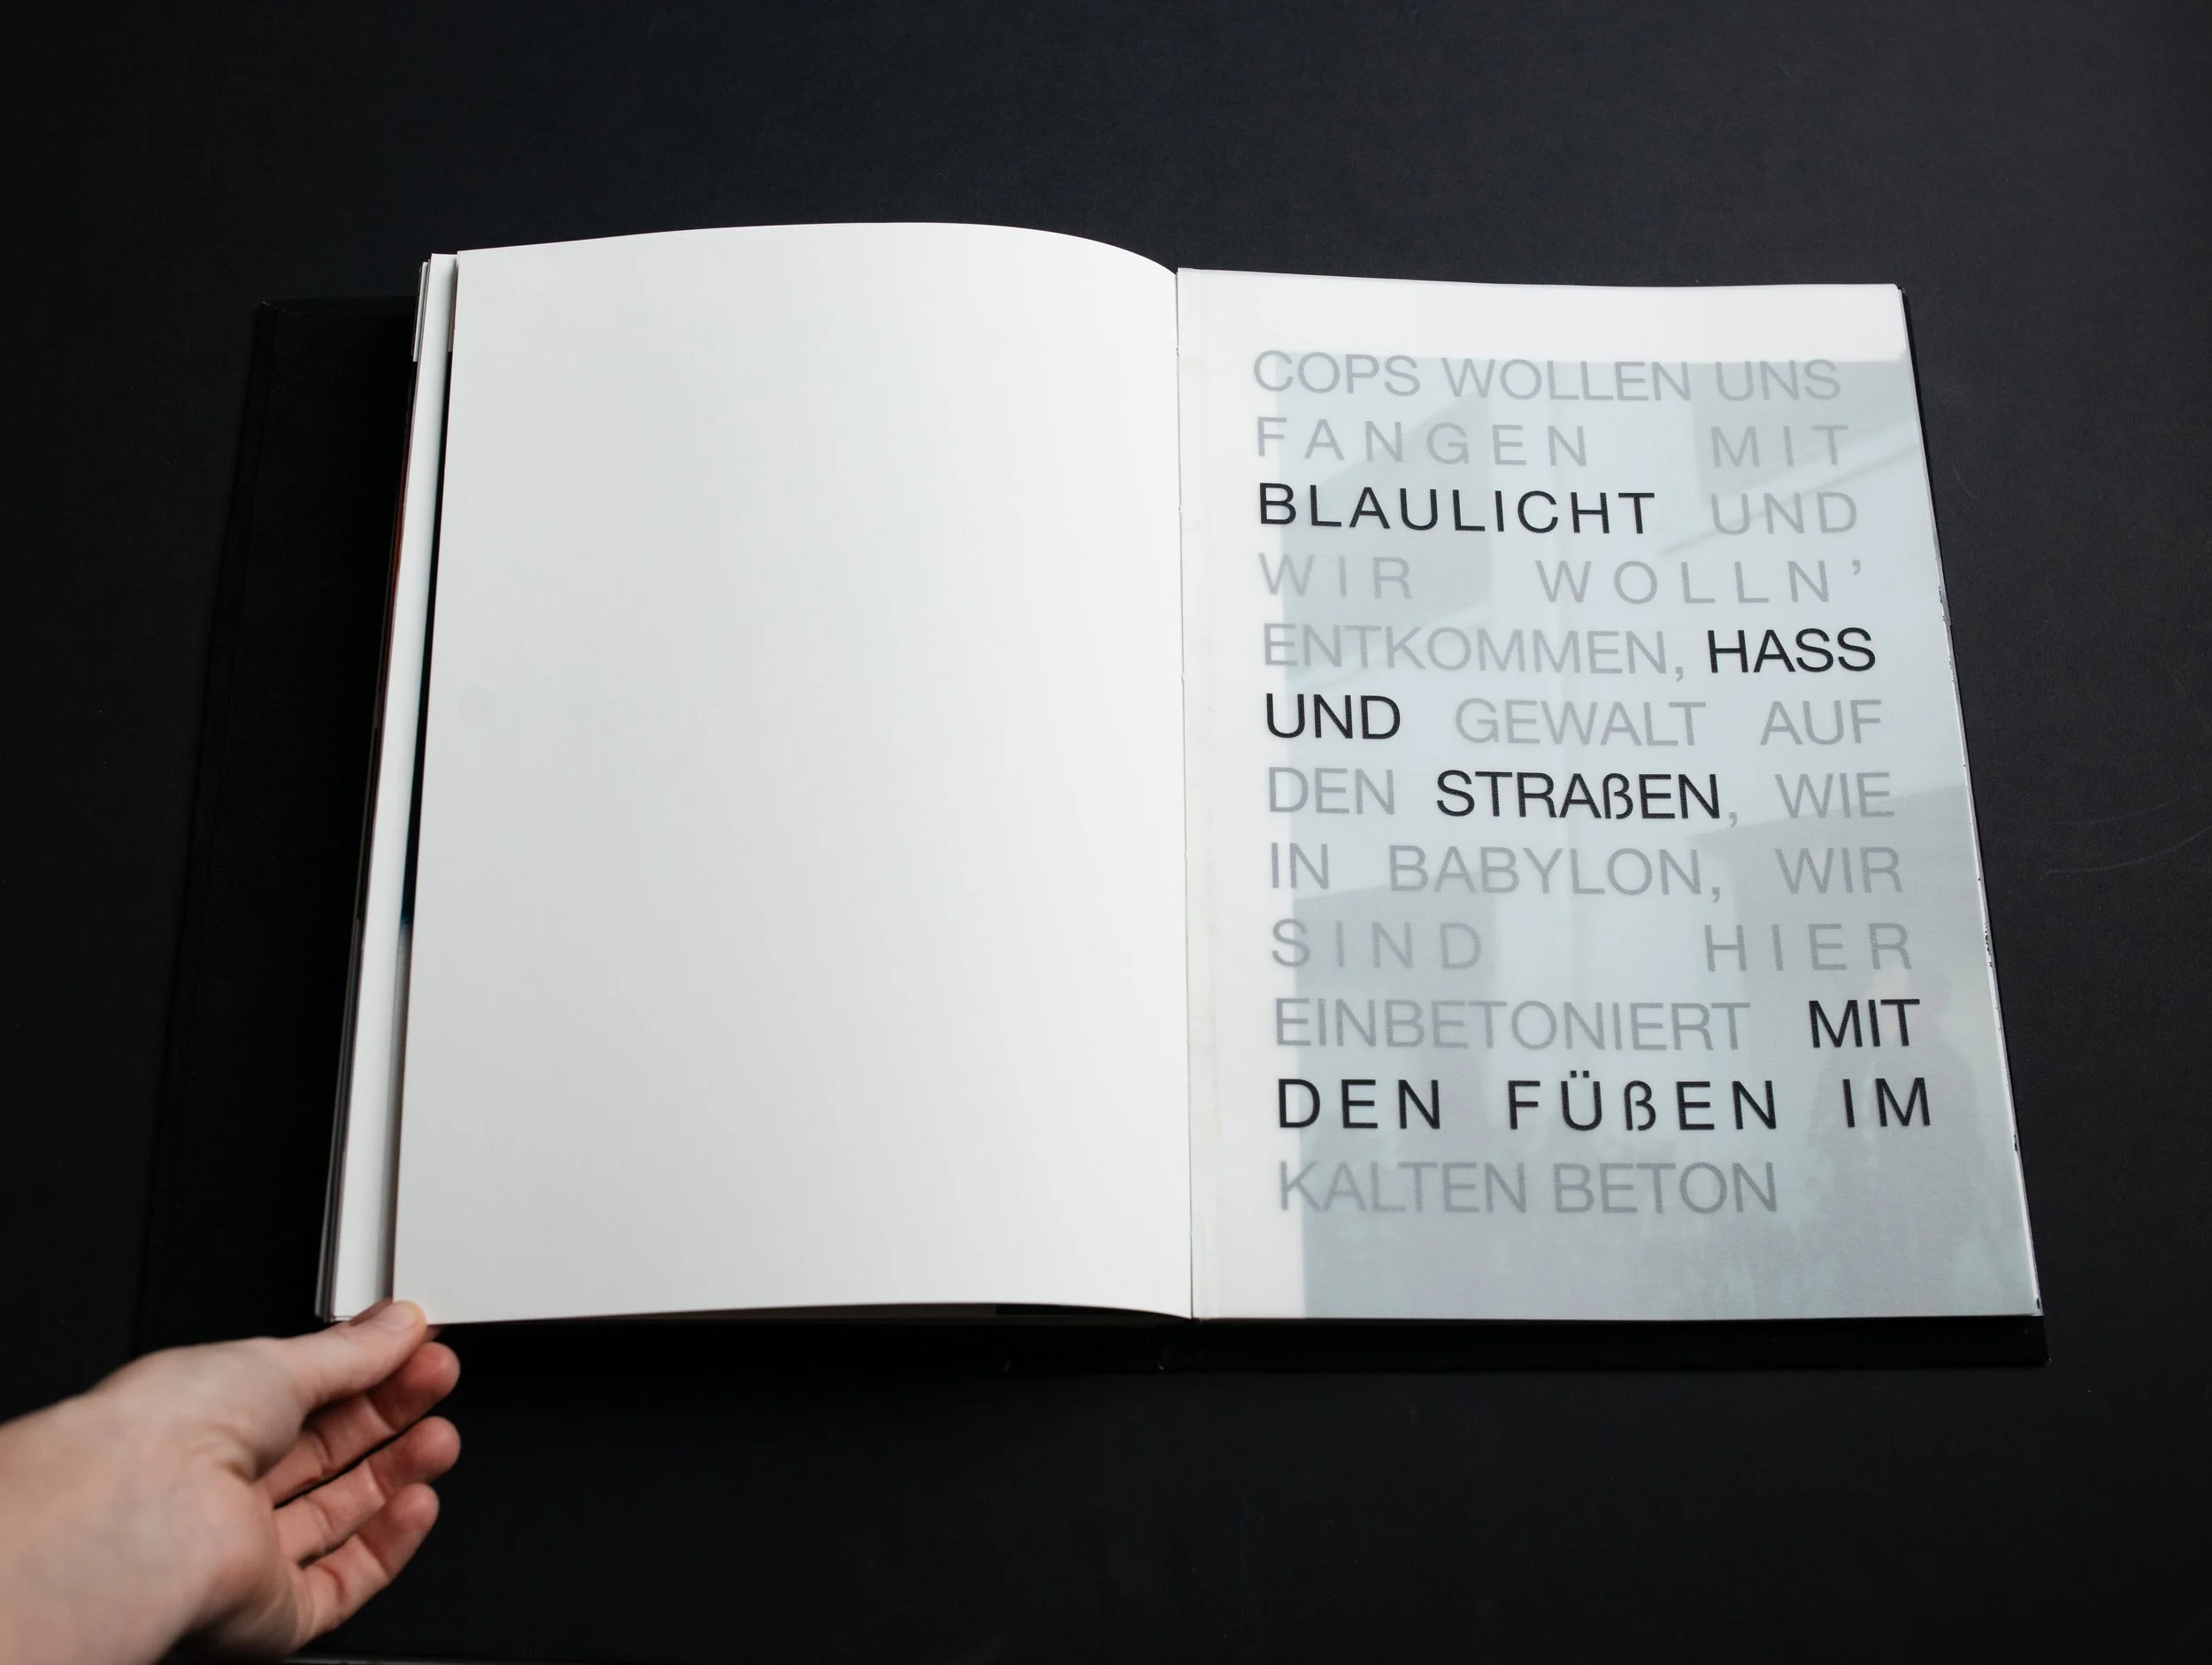 COPS WOLLEN UNS
FANGEN MIT
BLAULICHT UND
WIR WOLLN’
ENTKOMMEN, HASS
UND GEWALT AUF
DEN STRAßEN, WIE
IN BABYLON, WIR
SIND HIER
EINBETONIERT MIT
DEN FÜßEN IM
KALTEN BETON